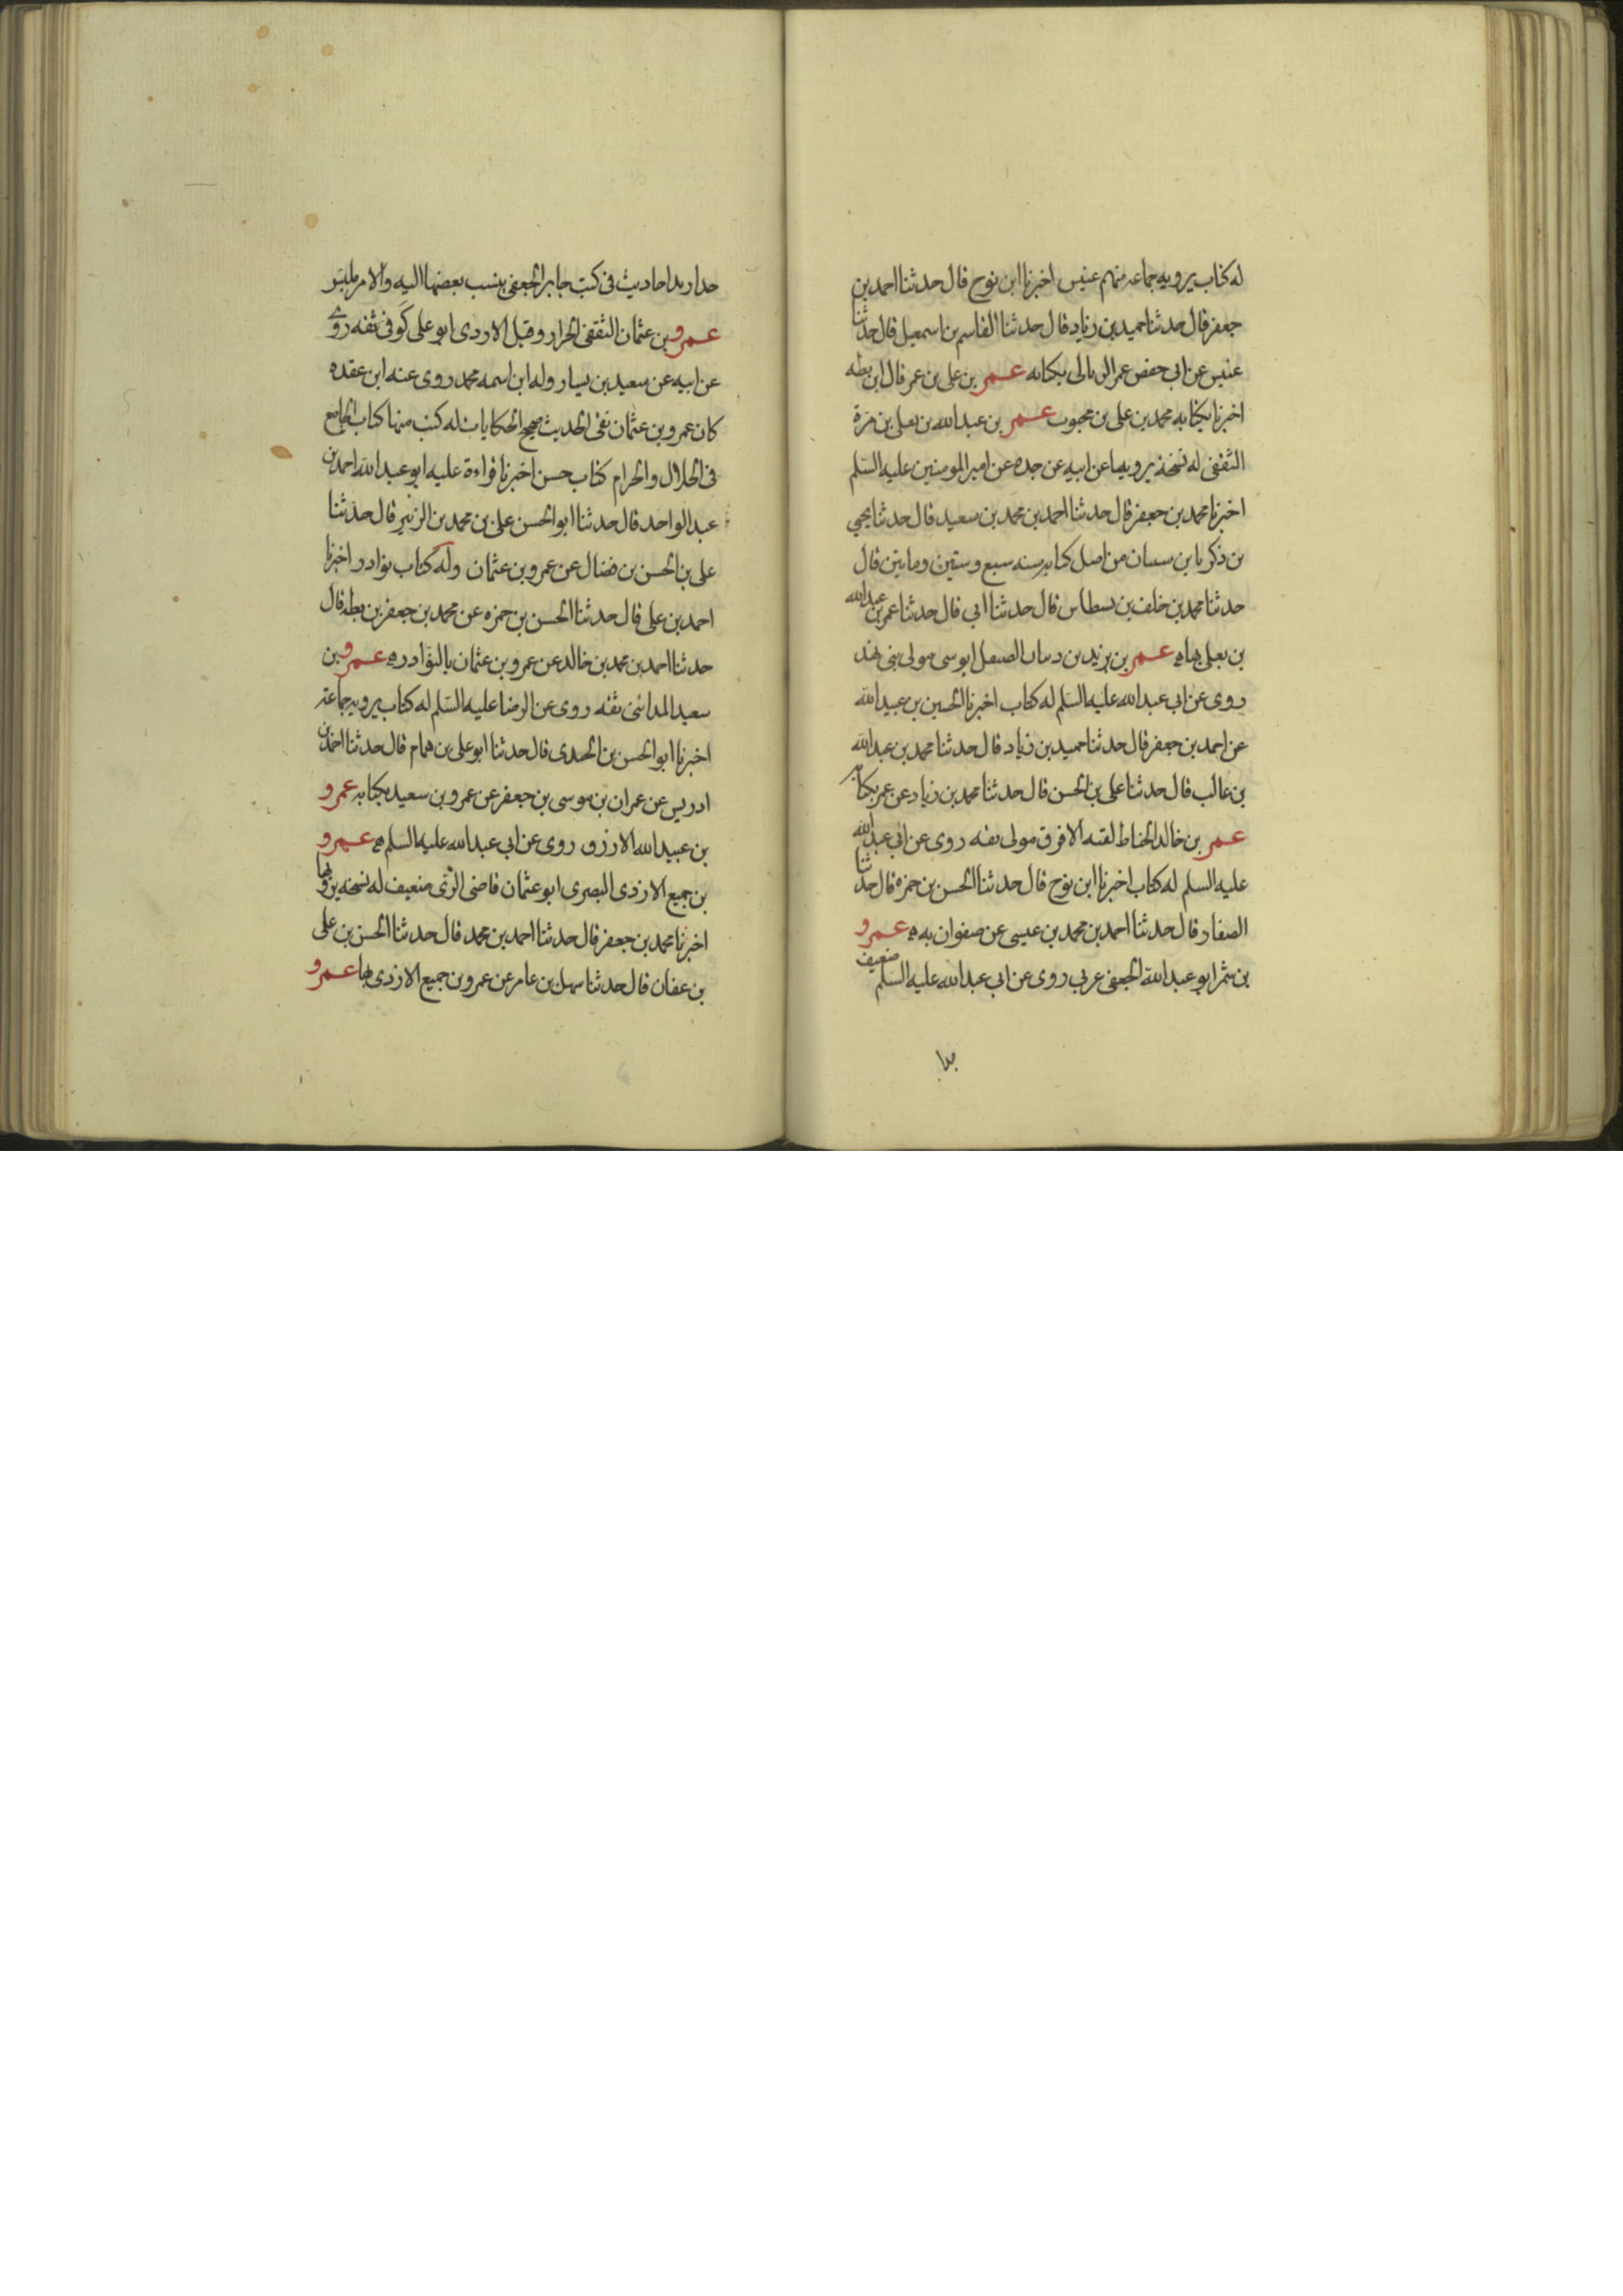 له كتاب يرويه جماعة منهم عنبس اخبرنا ابن نوح قال حدثنا احمد بن
جعفر قال حدثنا حميد بن زياد قال حدثنا القاسم بن اسمعيل قال حدثنا
عنبس عن ابي حفص عمر بكتابه عمر بن علي بن عمر قال ابن بطه
اخبرنا بكتابه محمد بن علي بن محبوب عمر بن عبد الله بن يعلى بن مرة
الثقفى له نسخة يرويها عن ابيه عن جده عن امير المومنين عليه السلم
اخبرنا محمد بن جعفر قال حدثنا احمد بن محمد بن سعيد قال حدثنا يحيى
بن زكريا بن من اصل كتابه سنه سبع وستين ومايتين قال
حدثنا محمد بن خلف بن بسطاس قال حدثنا ابي قال حدثنا عمر بن عبد الله
بن يعلى بها عمر بن يزيد بن الصيقل ابو موسى مولى بنى نهد
روى عن ابي عبد الله عليه السلم له كتاب اخبرنا الحسين بن عبيد الله
عن احمد بن جعفر قال حدثنا حميد بن زياد قال حدثنا محمد بن عبد الله
بن غالب قال حدثنا على بن الحسن قال حدثنا محمد بن زياد عن عمر بكتابه
عمر بن خالد الحناط لقبه الافرق مولى ثقه روى عن ابي عبد الله
عليه السلم له كتاب اخبرنا ابن نوح قال حدثنا الحسن بن حمزه قال حدثنا
الصفار قال حدثنا احمد بن محمد بن عيسى عن صفوان به عمرو
بن شمر ابو عبد الله الجعفى عربي روى عن ابي عبد الله عليه السلم ضعيف
حدا زيد احاديث فى كتب جابر الجعفى ينسب بعضها اليه والامر ملبس
عمرو بن عثمان الثقفى الخزاز وقيل الازدى ابو على كوفى ثقه روى
عن ابيه عن سعيد بن يسار وله ابن اسمه محمد روى عنه ابن عقده
كان عمرو بن عثمان نقى الحديث صحيح الحكايات له كتب منها كتاب الجامع
فى الحلال والحرام كتاب حسن اخبرنا قراءة عليه ابو عبد الله احمد بن
عبد الواحد قال حدثنا ابو الحسن على بن محمد بن الزبير قال حدثنا
على بن الحسن بن فضال عن عمرو بن عثمان وله كتاب نوادر اخبرنا
احمد بن على قال حدثنا الحسن بن حمزه عن محمد بن جعفر بن بطه قال
حدثنا احمد بن محمد بن خالد عن عمرو بن عثمان بالنوادر عمرو بن
سعيد المدائنى ثقه روى عن الرضا عليه السلم له كتاب يرويه جماعة
اخبرنا ابو الحسن بن الجندى قال حدثنا ابو على بن همام قال حدثنا احمد بن
ادريس عن عمران بن موسى بن جعفر عن عمرو بن سعيد بكتابه عمرو
بن عبيد الله الازرق روى عن ابي عبد الله عليه السلم عمرو
بن جميع الازدى البصرى ابو عثمان قاضى الرى ضعيف له نسخه يرويها
اخبرنا محمد بن جعفر قال حدثنا احمد بن محمد قال حدثنا الحسن بن على
بن عفان قال حدثنا سهل بن عامر عن عمرو بن جميع الازدى بها عمرو